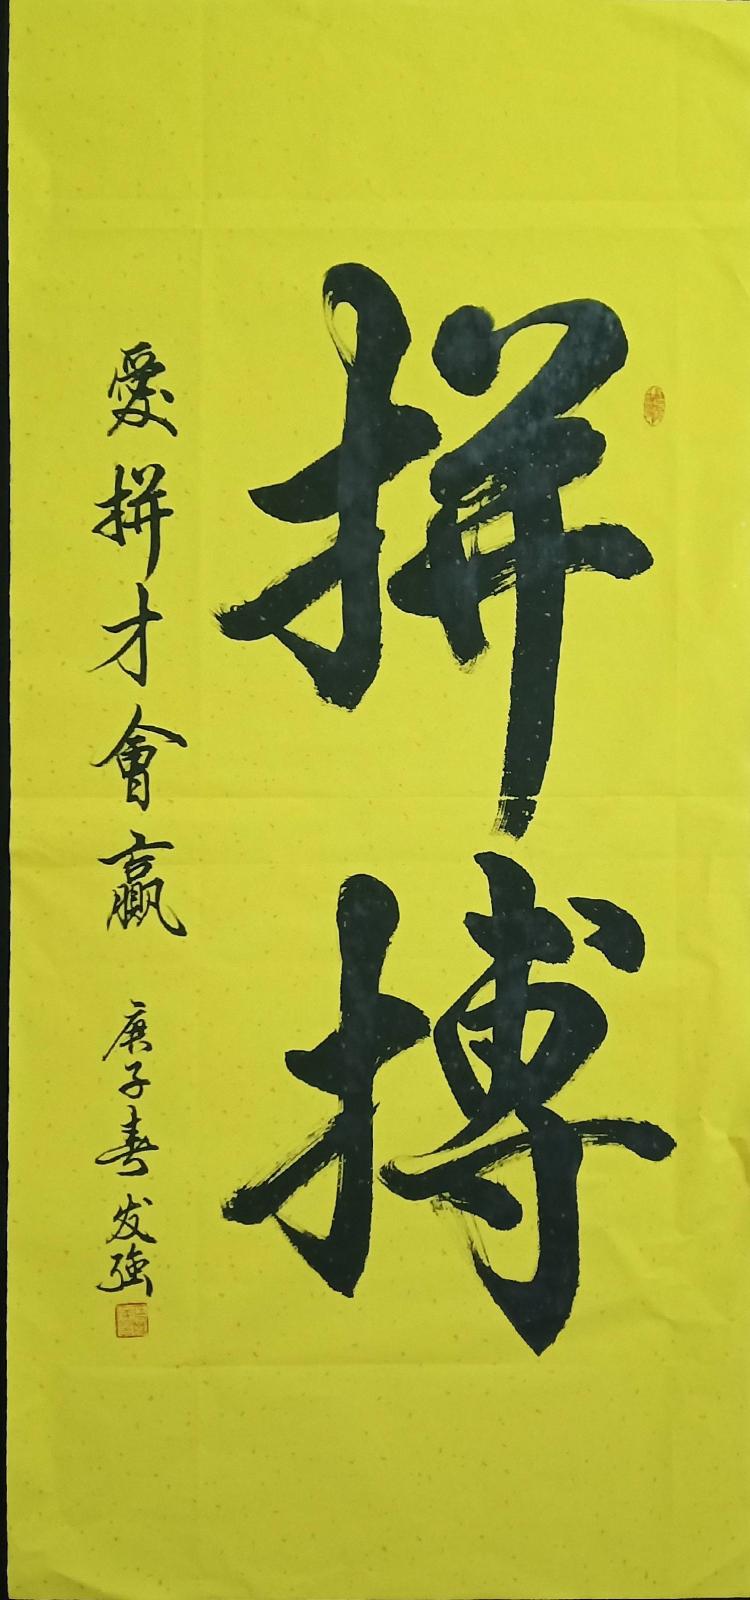 拼搏
愛拼才會贏
庚子春发強